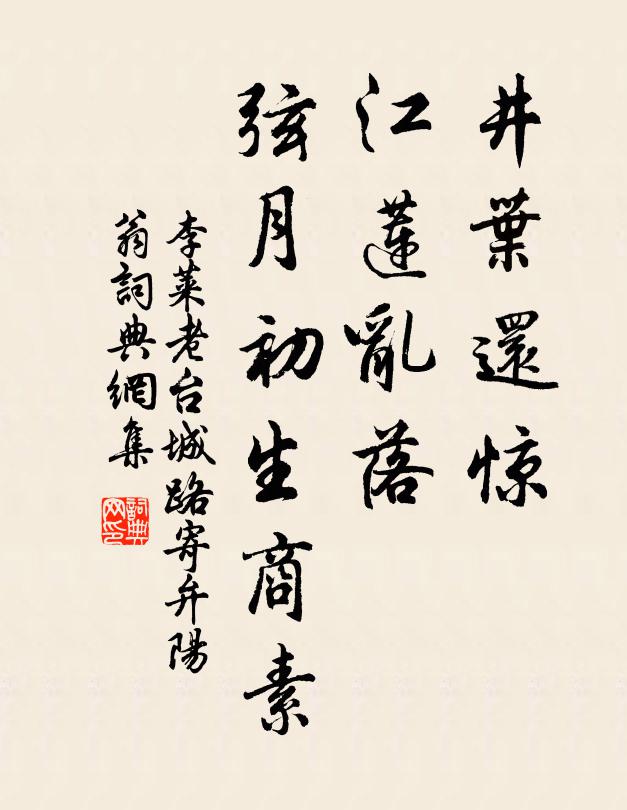 井葉還惊
江蓮亂落
弦月初生商素
李萊老台城路寄弁陽
翁詞典網集
詞典网印